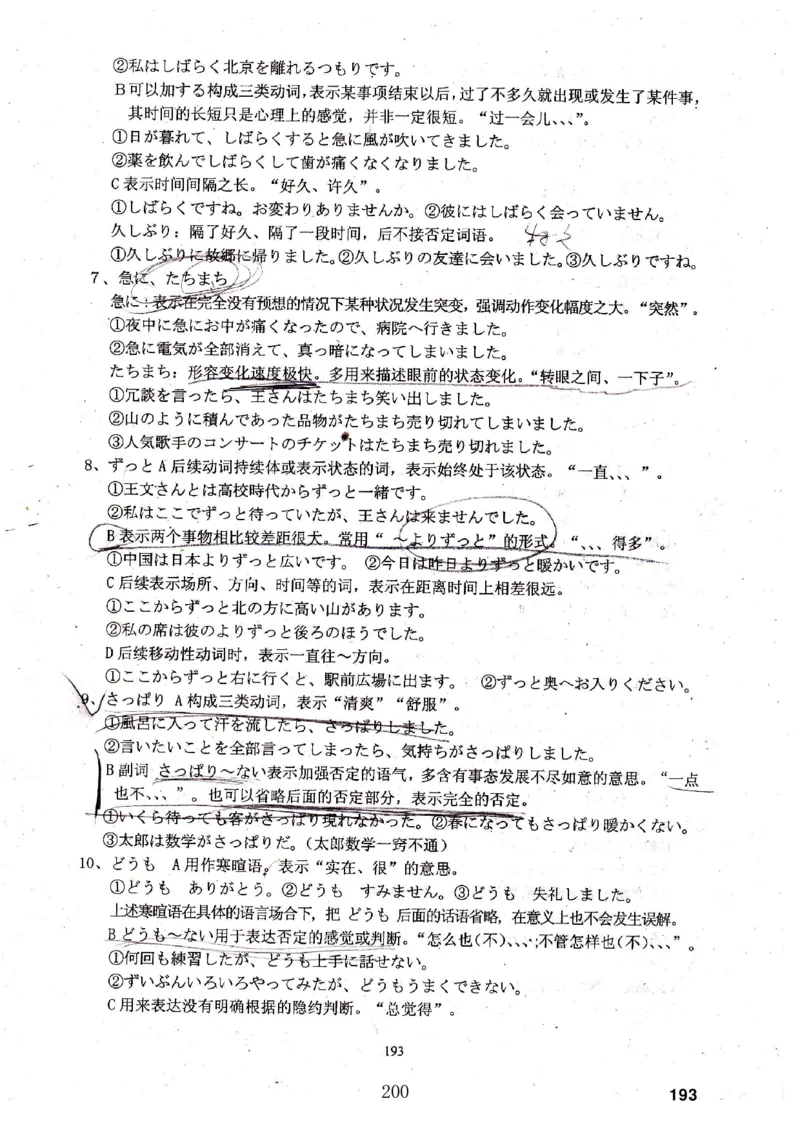 ②私はしばらく北京を離れるつもりです。
B可以加する构成三类动词，表示某事项结束以后，过了不多久就出现或发生了某件事，
其时间的长短只是心理上的感觉，并非一定很短。“过一会儿、、、”。
①日が暮れて、しばらくすると急に風が吹いてきました。
②薬を飲んでしばらくして歯が痛くなくなりました。
C表示时间间隔之长。“好久、许久”。
①しばらくですね。お変わりありませんか。②彼にはしばらく会っていません。
久しぶり：隔了好久、隔了一段时间，后不接否定词语。
①久しぶりに故郷に帰りました。②久しぶりの友達に会いました。③久しぶりですね。
7、急に、たちまち
急に：表示在完全没有预想的情况下某种状况发生突变，强调动作变化幅度之大。“突然”。
①夜中に急にお中が痛くなったので、病院へ行きました。
②急に電気が全部消えて、真っ暗になってしまいました。
たちまち：形容变化速度极快。多用来描述眼前的状态变化。“转眼之间、一下子”。
①冗談を言ったら、王さんはたちまち笑い出しました。
②山のように積んであった品物がたちまち売り切れてしまいました。
③人気歌手のコンサートのチケットはたちまち売り切れました。
8、ずっとA后续动词持续体或表示状态的词，表示始终处于该状态。“一直、、、”。
①王文さんとは高校時代からずっと一緒です。
②私はここでずっと待っていたが、王さんは来ませんでした。
B表示两个事物相比较差距很大。常用“～よりずっと”的形式。“、、、得多”。
①中国は日本よりずっと広いです。 ②今日は昨日よりずっと暖かいです。
C后续表示场所、方向、时间等的词，表示在距离时间上相差很远。
①ここからずっと北の方に高い山があります。
②私の席は彼のよりずっと後ろのほうでした。
D后续移动性动词时，表示一直往～方向。
①ここからずっと右に行くと、駅前広場に出ます。 ②ずっと奥へお入りください。
9、さっぱり A构成三类动词，表示“清爽”“舒服”。
①風呂に入って汗を流したら、さっぱりしました。
②言いたいことを全部言ってしまったら、気持ちがさっぱりしました。
B副词 さっぱり～ない表示加强否定的语气，多含有事态发展不尽如意的意思。“一点
也不、、、”。也可以省略后面的否定部分，表示完全的否定。
①いくら待っても客がさっぱり現れなかった。②春になってもさっぱり暖かくない。
③太郎は数学がさっぱりだ。（太郎数学一窍不通）
10、どうも A用作寒暄语。表示“实在、很”的意思。
①どうも ありがとう。②どうも すみません。③どうも 失礼しました。
上述寒暄语在具体的语言场合下，把 どうも 后面的话语省略，在意义上也不会发生误解。
Bどうも～ない用于表达否定的感觉或判断。“怎么也（不）、、、；不管怎样也（不）、、、”。
①何回も練習したが、どうも上手に話せない。
②ずいぶんいろいろやってみたが、どうもうまくできない。
C用来表达没有明确根据的隐约判断。“总觉得”。
193
200
193